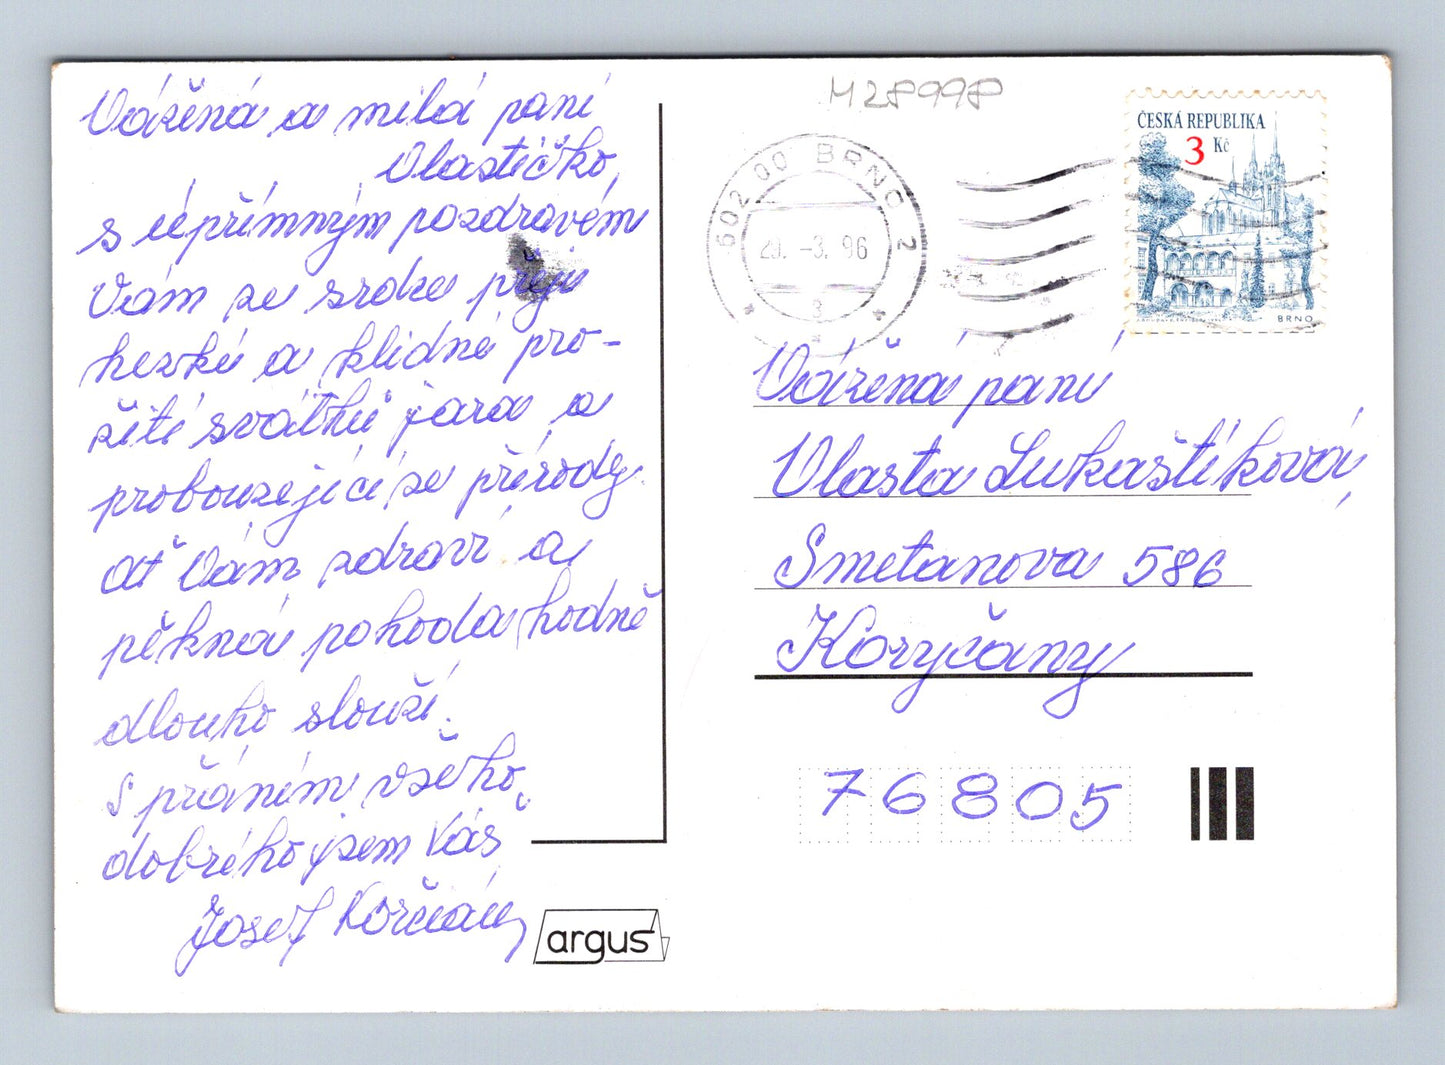 Vážená a milá paní
Vlastičko,
s upřímným pozdravem
Vám ze srdce přeji
hezké a klidné pro-
žití svátků jara a
probouzející se přírody.
ať Vám zdraví a
pěkná pohoda hodně
dlouho slouží.
S přáním všeho
dobrého jsem Váš
Josef
argus
M28998
602 00 BRNO 2
29. -3. 96
3
ČESKÁ REPUBLIKA
3 Kč
BRNO
Vážená paní
Vlasta Lukaštíková,
Smetanova 586
Koryčany
76805